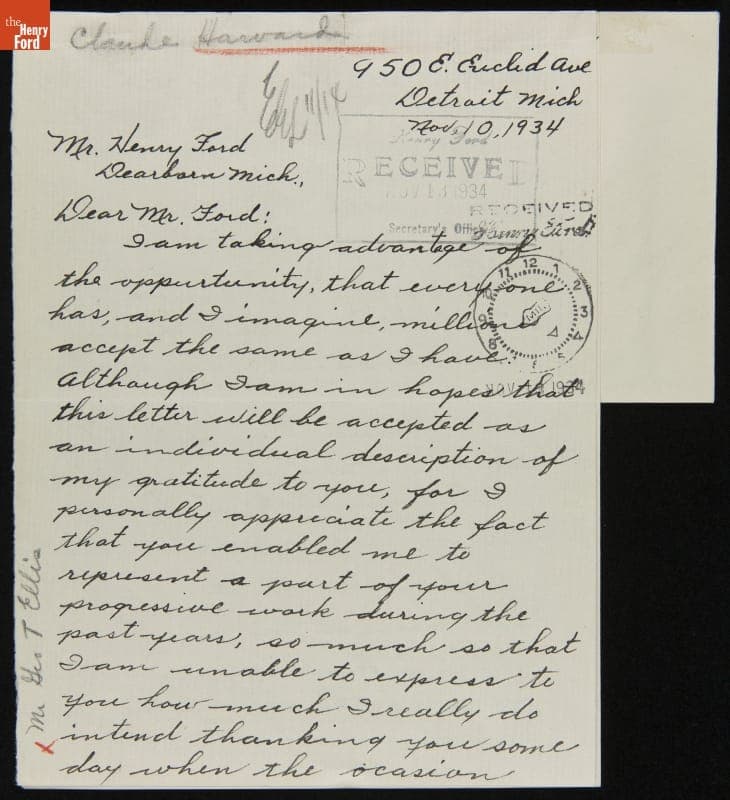 the
Henry
Ford
Claude Harvard
950 E. Euclid Ave
Detroit Mich
Nov, 10, 1934
Mr. Henry Ford
Dearborn Mich.,
Henry Ford
RECEIVED
NOV 13 1934
Secretary's Office
RECEIVED
Dear Mr. Ford:
I am taking advantage of
the oppurtunity, that every one
has, and I imagine, millions
accept the same as I have.
Although I am in hopes that
this letter will be accepted as
an individual description of
my gratitude to you, for I
personally appreciate the fact
that you enabled me to
represent a part of your
progressive work during the
past years, so much so that
I am unable to express to
you how much I really do
intend thanking you some
day when the ocasion
11 12 1 2 3
10 9 8
1934
Mr Geo T Ellis
x